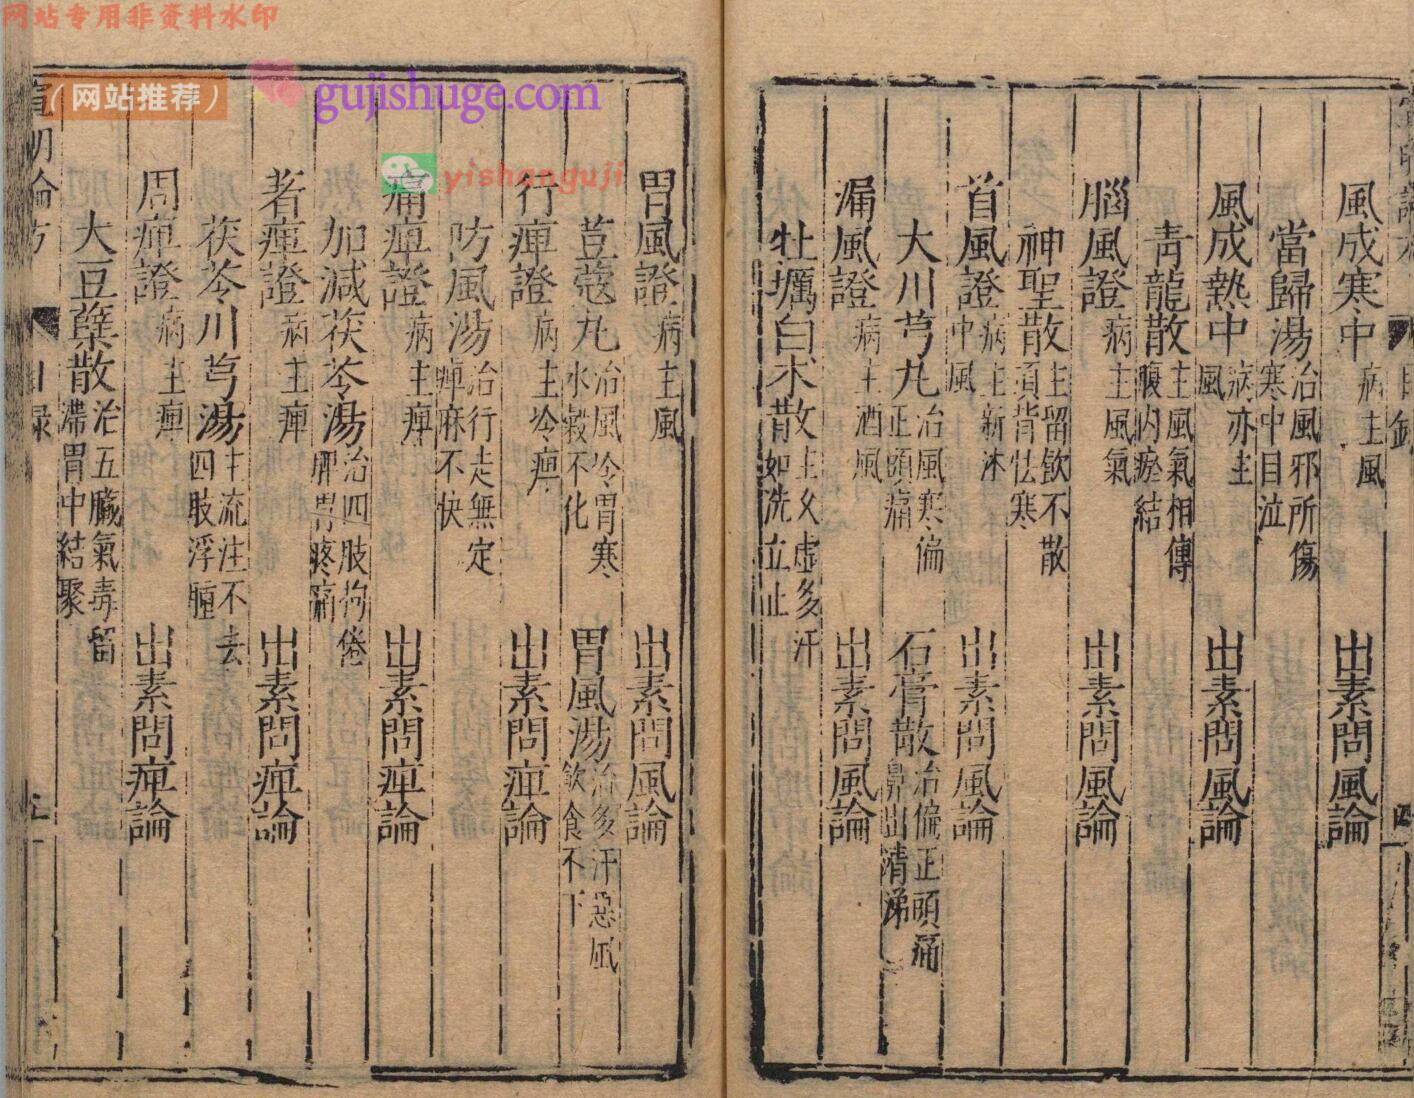 网站专用非资料水印
（网站推荐）
gujishuge.com
yishanguji
風成寒中 病主風 出素問風論
當歸湯 治風邪所傷寒中目泣
風成熱中 病亦主風 出素問風論
青龍散 主風氣相傳腹內瘀結
腦風證 病主風氣 出素問風論
神聖散 主留飲不散項背怯寒
首風證 病主新沐中風 出素問風論
大川芎丸 治風寒偏正頭痛 石膏散 治偏正頭痛鼻出清涕
漏風證 病主酒風 出素問風論
牡蠣白术散 主久虛多汗如洗立止
胃風證 病主風 出素問風論
荳蔻丸 治風冷胃寒水穀不化 胃風湯 治多汗惡風飲食不下
行痺證 病主冷痺 出素問痺論
防風湯 治行走無定痺麻不快
痛痺證 病主痺 出素問痺論
加減茯苓湯 治四肢拘倦脾胃疼痛
者痺證 病主痺 出素問痺論
茯苓川芎湯 主流注不去四肢浮腫
周痺證 病主痺 出素問痺論
大豆蘖散 治五臟氣毒留滯胃中結聚
宣明論方 目錄